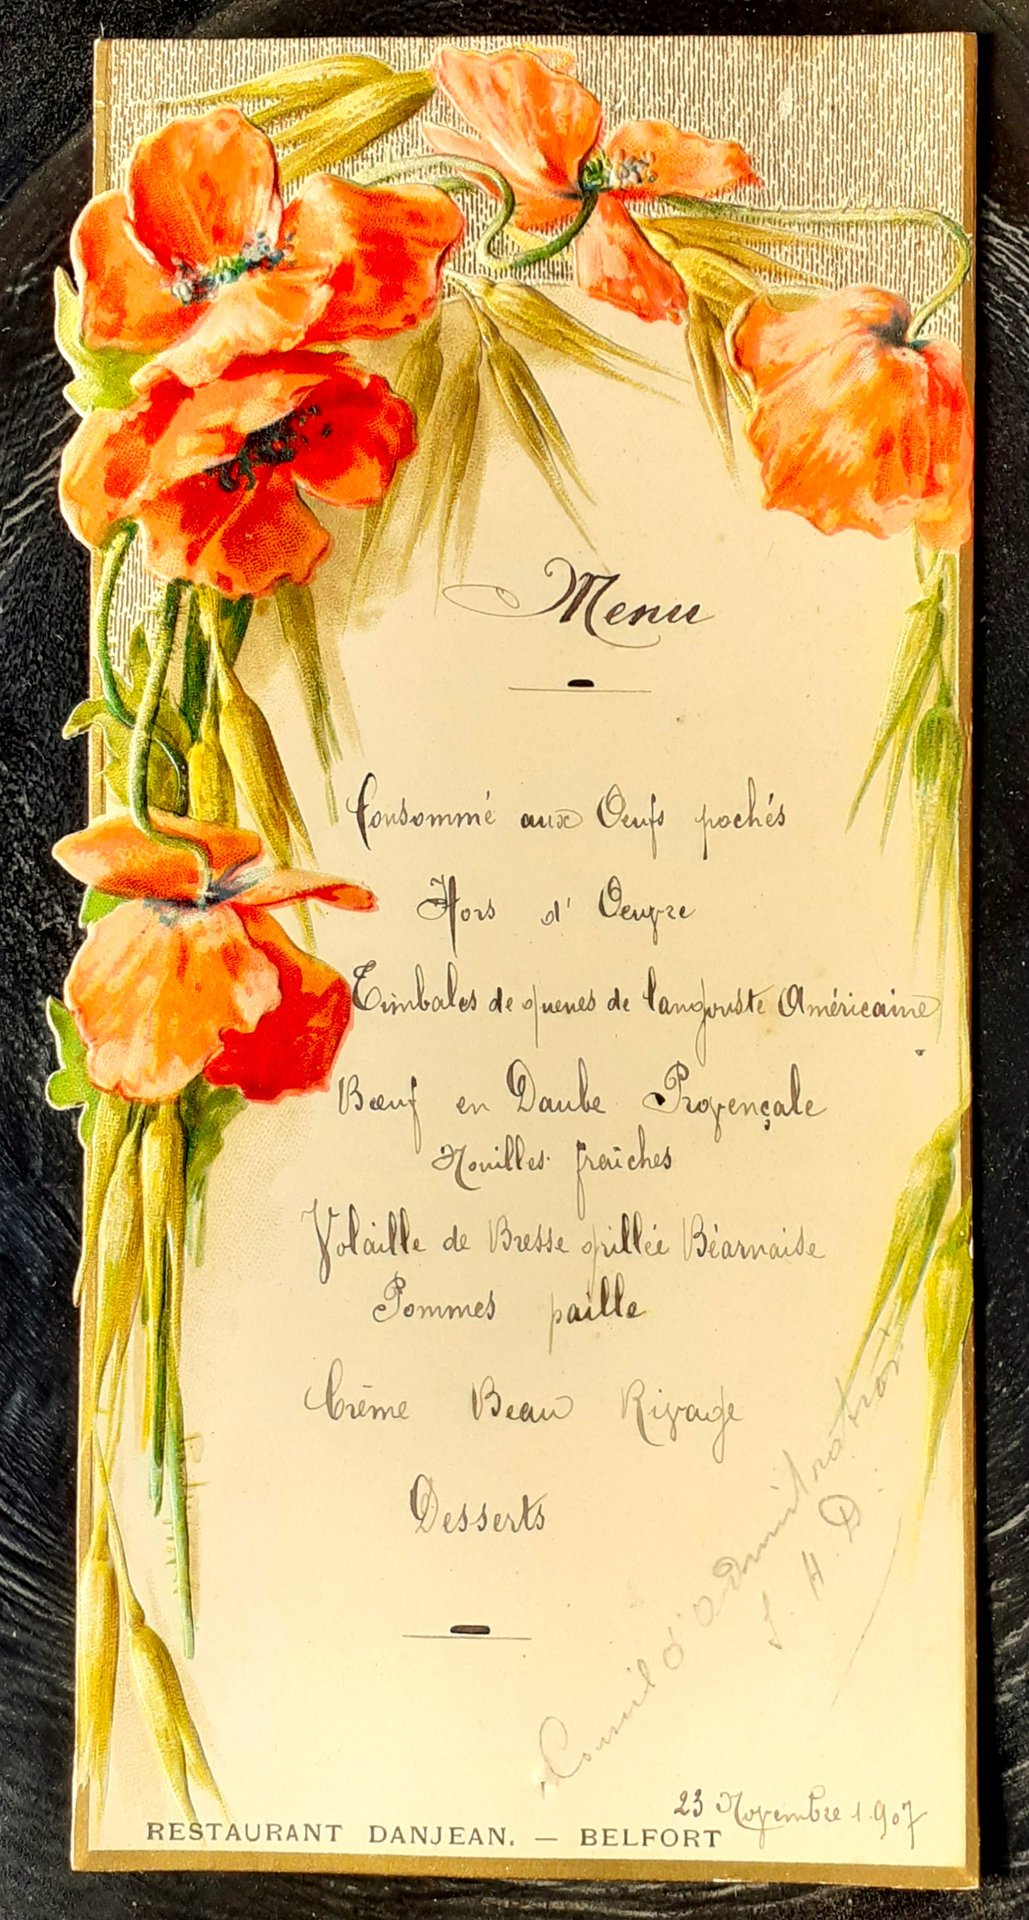 Menu
Consommé aux Oeufs pochés
Hors d'Oeuvre
Timbales de queues de langouste Américaine
Bœuf en Daube Provençale
Nouilles fraîches
Volaille de Bresse grillée Béarnaise
Pommes paille
Crème Beau Rivage
Desserts
Conseil d'administration
S. H. D.
23 Novembre 1.907
RESTAURANT DANJEAN. — BELFORT